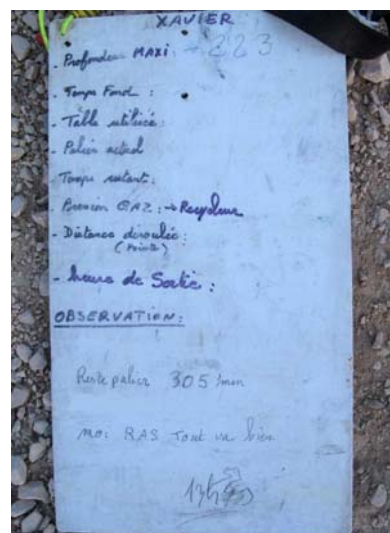 XAVIER
- Profondeur MAXI : - 223
- Temps Fond :
- Table utilisée :
- Palier actuel
Temps restant :
- Pression GAZ : → Recycleur
- Distance déroulée :
(Point)
- heure de Sortie :
OBSERVATION :
Reste palier 305 min
RAS Tout va bien